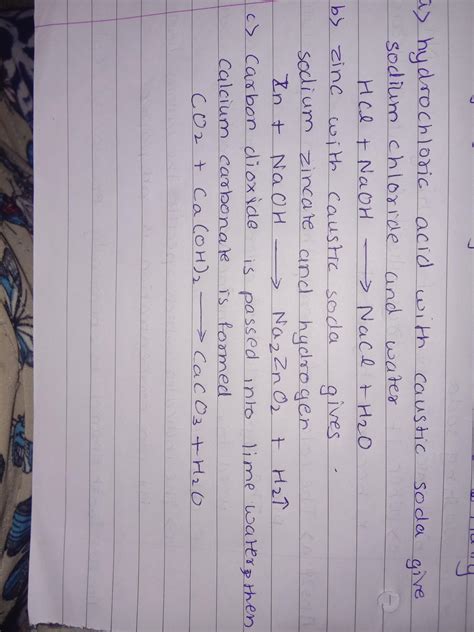 a) hydrochloric acid with caustic soda give
sodium chloride and water
HCl + NaOH → NaCl + H2O
b) zinc with caustic soda gives.
sodium zincate and hydrogen
Zn + NaOH → Na2ZnO2 + H2↑
c) Carbon dioxide is passed into lime water, then
calcium carbonate is formed
CO2 + Ca(OH)2 → CaCO3 + H2O